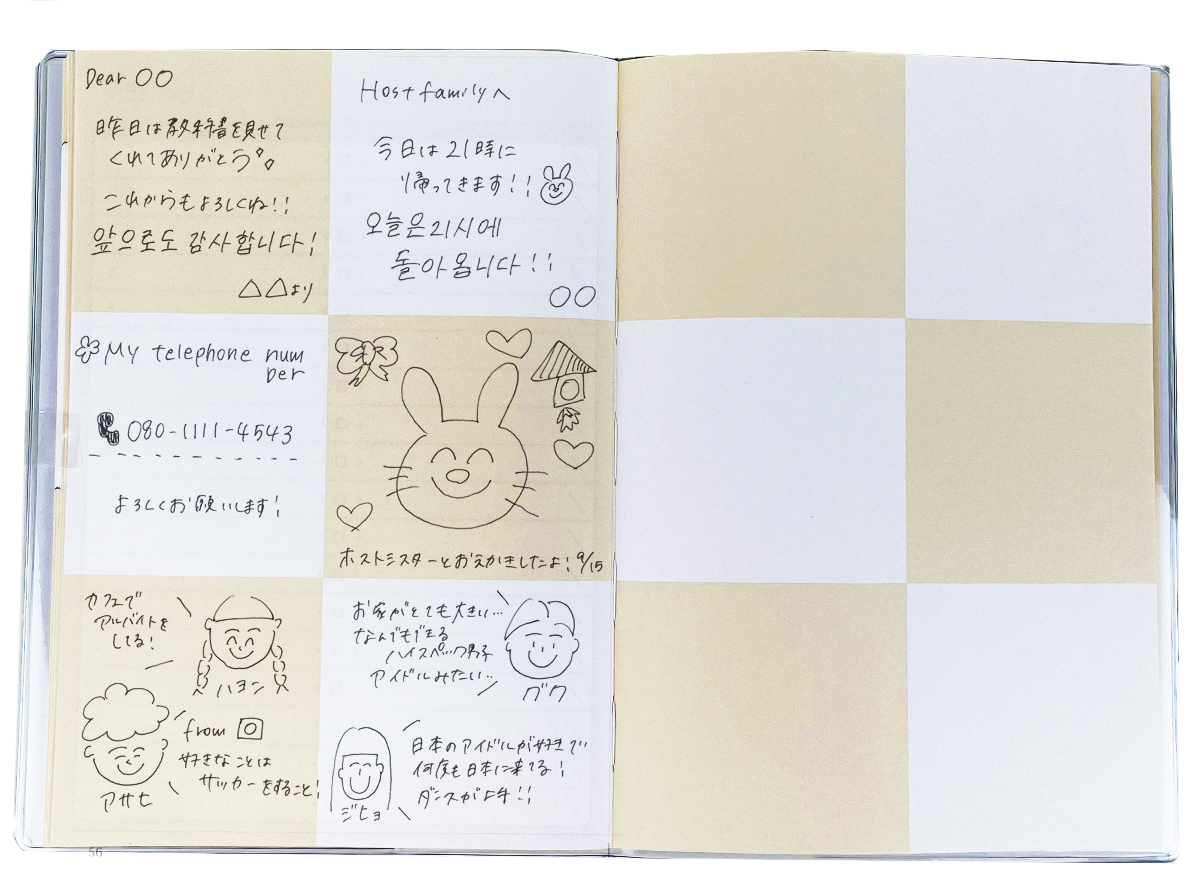 Dear ○○
昨日は教科書を見せて
くれてありがとう。。
これからもよろしくね!!
앞으로도 감사합니다!
△△より
Host familyへ
今日は21時に
帰ってきます!!
오늘은 21시에
돌아옵니다!!
○○
My telephone num
ber
080-1111-4543
よろしくお願いします!
ホストシスターとおえかきしたよ! 9/15
カフェで
アルバイトを
してる!
ハヨン
from
好きなことは
サッカーをすること!
アサヒ
お家がとても大きい…
なんでもできる
ハイスペック男子
アイドルみたい…
グク
日本のアイドルが好きで
何度も日本に来てる!
ダンスが上手!!
ジヒョ
56